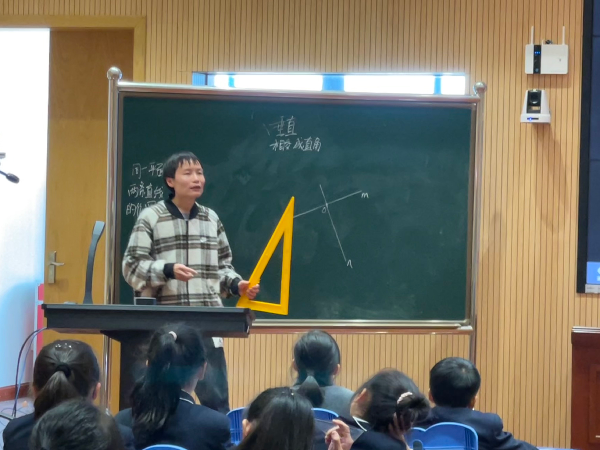 垂直
相交 成直角
同一平面
两条直线
的位
m
n